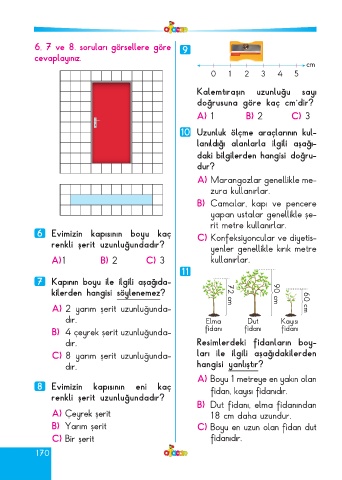 6, 7 ve 8. soruları görsellere göre
cevaplayınız.
6 Evimizin kapısının boyu kaç
renkli şerit uzunluğundadır?
A)1 B) 2 C) 3
7 Kapının boyu ile ilgili aşağıda-
kilerden hangisi söylenemez?
A) 2 yarım şerit uzunluğunda-
dır.
B) 4 çeyrek şerit uzunluğunda-
dır.
C) 8 yarım şerit uzunluğunda-
dır.
8 Evimizin kapısının eni kaç
renkli şerit uzunluğundadır?
A) Çeyrek şerit
B) Yarım şerit
C) Bir şerit
170
9
cm
0 1 2 3 4 5
Kalemtıraşın uzunluğu sayı
doğrusuna göre kaç cm'dir?
A) 1 B) 2 C) 3
10 Uzunluk ölçme araçlarının kul-
lanıldığı alanlarla ilgili aşağı-
daki bilgilerden hangisi doğru-
dur?
A) Marangozlar genellikle me-
zura kullanırlar.
B) Camcılar, kapı ve pencere
yapan ustalar genellikle şe-
rit metre kullanırlar.
C) Konfeksiyoncular ve diyetis-
yenler genellikle kırık metre
kullanırlar.
11
72 cm
90 cm
60 cm
Elma Dut Kayısı
fidanı fidanı fidanı
Resimlerdeki fidanların boy-
ları ile ilgili aşağıdakilerden
hangisi yanlıştır?
A) Boyu 1 metreye en yakın olan
fidan, kayısı fidanıdır.
B) Dut fidanı, elma fidanından
18 cm daha uzundur.
C) Boyu en uzun olan fidan dut
fidanıdır.